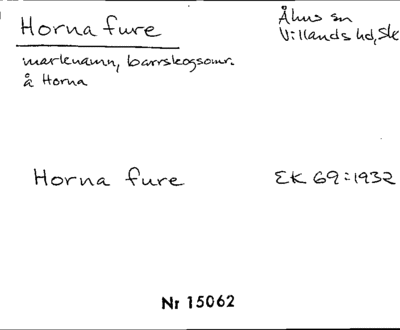 Horna fure
Åhus sn
Villands hd, Sk
markenamn, barrskogsomr.
å Horna
Horna fure
EK 69:1932
Nr 15062